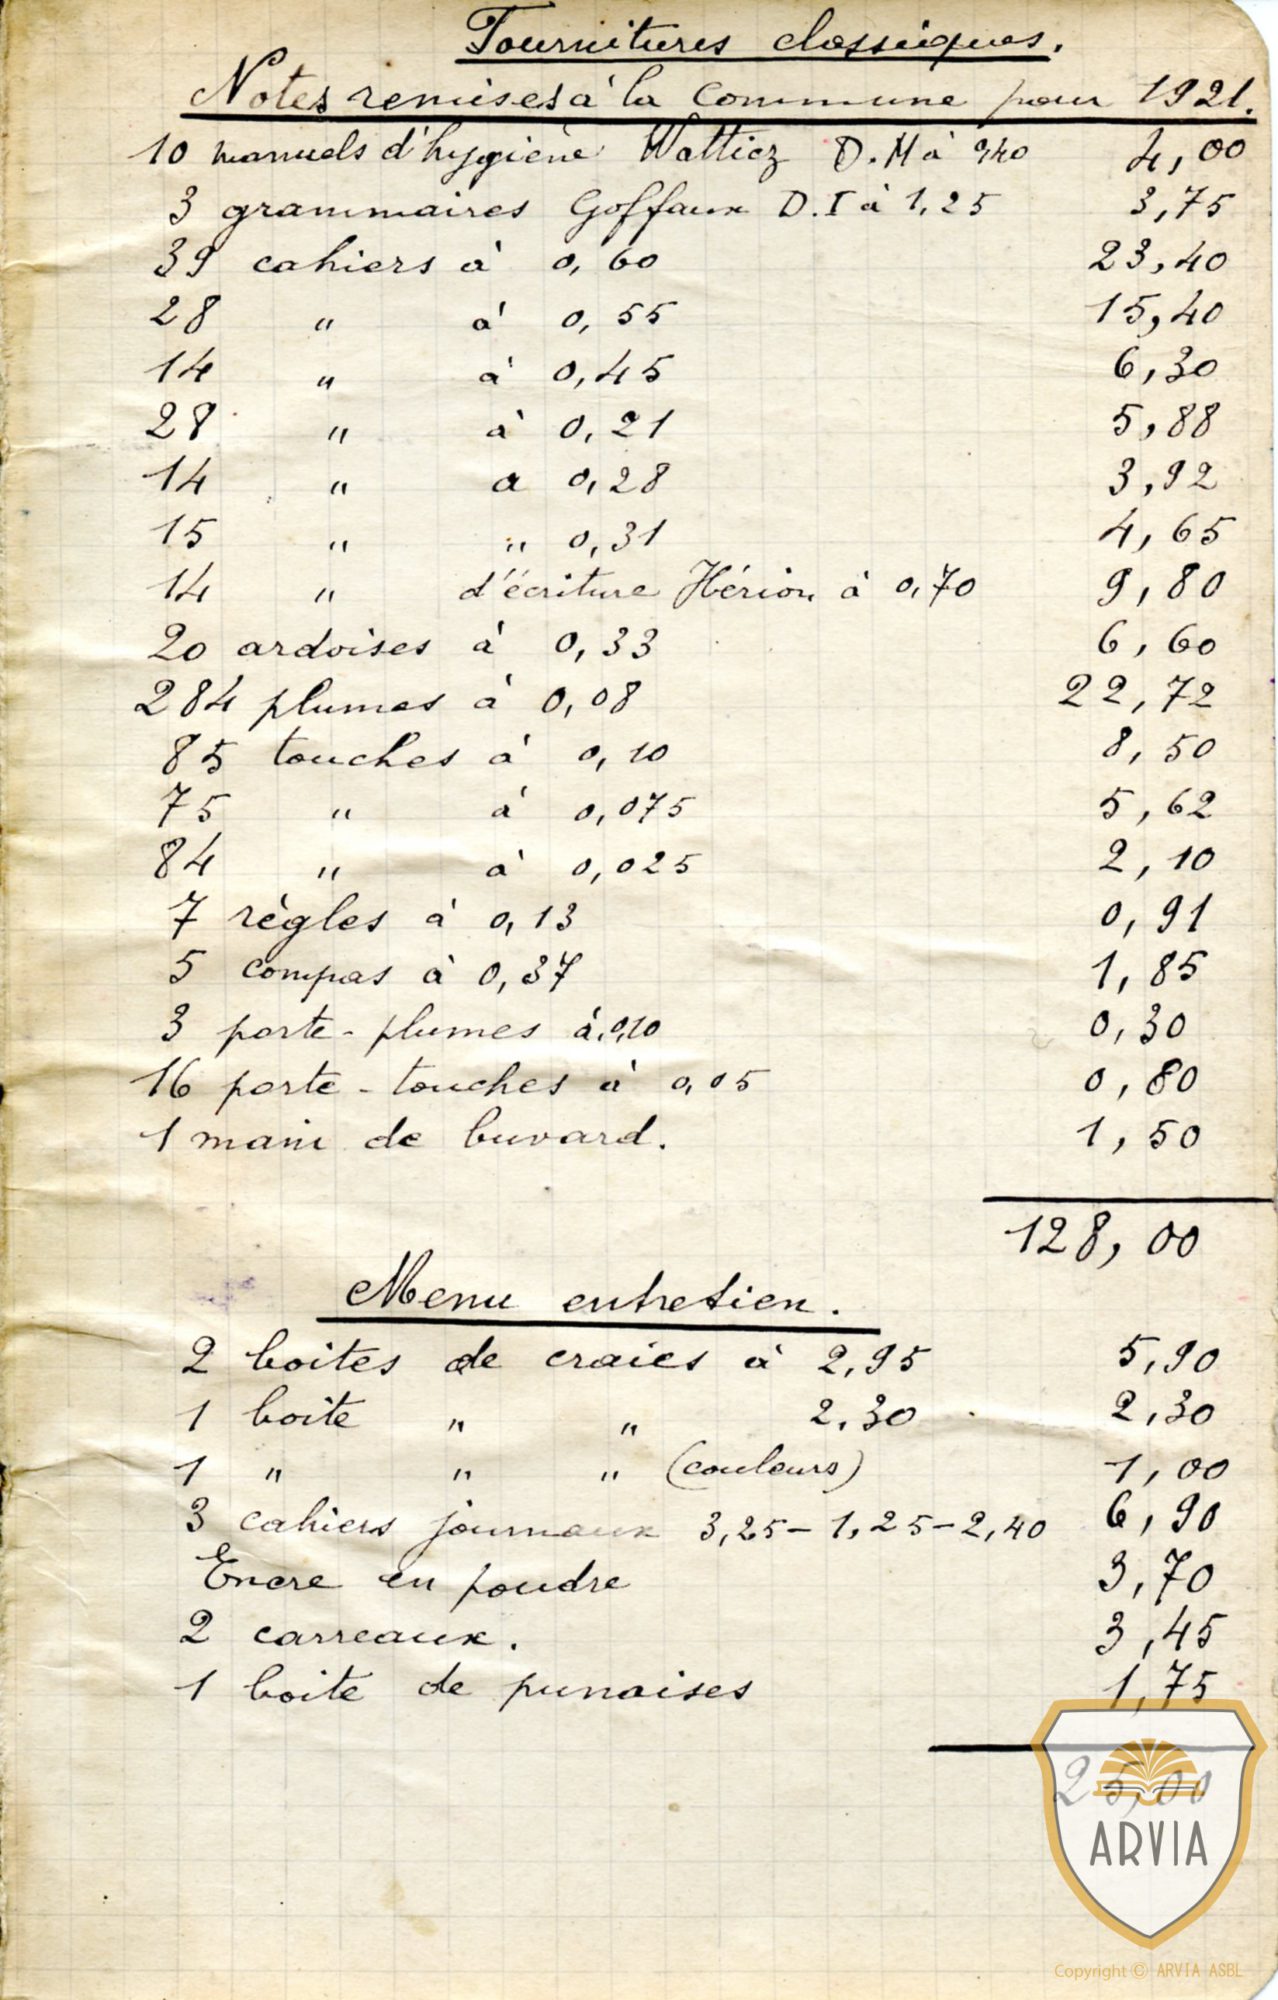 Fournitures classiques.
Notes remises à la Commune pour 1921.
10 manuels d'hygiène Wattiez D.M à 0,40 4,00
3 grammaires Goffaux D.I à 1,25 3,75
39 cahiers à 0,60 23,40
28 " à 0,55 15,40
14 " à 0,45 6,30
28 " à 0,21 5,88
14 " a 0,28 3,92
15 " " 0,31 4,65
14 " d'écriture Hérion à 0,70 9,80
20 ardoises à 0,33 6,60
284 plumes à 0,08 22,72
85 touches à 0,10 8,50
75 " à 0,075 5,62
84 " à 0,025 2,10
7 règles à 0,13 0,91
5 compas à 0,37 1,85
3 porte-plumes à 0,10 0,30
16 porte-touches à 0,05 0,80
1 main de buvard. 1,50
128,00
Menu entretien.
2 boites de craies à 2,95 5,90
1 boite " " 2,30 2,30
1 " " " (couleurs) 1,00
3 cahiers journaux 3,25-1,25-2,40 6,90
Encre en poudre 3,70
2 carreaux. 3,45
1 boite de punaises 1,75
25,00
ARVIA
Copyright © ARVIA ASBL